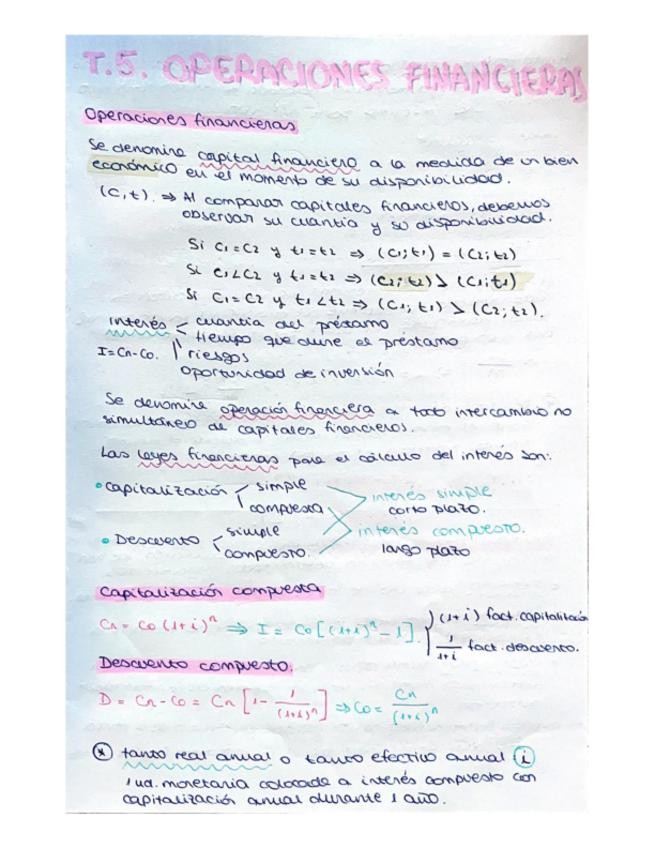 T.5. OPERACIONES FINANCIERAS
Operaciones financieras
Se denomina capital financiero a la medida de un bien
económico en el momento de su disponibilidad.
(C,t). ⇒ Al comparar capitales financieros, debemos
observar su cuantía y su disponibilidad.
Si C1=C2 y t1=t2 ⇒ (C1;t1) = (C2;t2)
Si C1<C2 y t1=t2 ⇒ (C2;t2) > (C1;t1)
Si C1=C2 y t1<t2 ⇒ (C1;t1) > (C2;t2).
interés cuantía del préstamo
tiempo que dure el préstamo
I=Cn-Co. riesgos
oportunidad de inversión
Se denomina operación financiera a todo intercambio no
simultáneo de capitales financieros.
Las leyes financieras para el cálculo del interés son:
• capitalización simple interés simple
compuesta corto plazo.
• Descuento simple interés compuesto.
compuesto. largo plazo
Capitalización compuesta
Cn = Co(1+i)^n ⇒ I = Co[(1+i)^n - 1]. (1+i) fact. capitalitación
1/(1+i) fact. descuento.
Descuento compuesto.
D = Cn - Co = Cn [1 - 1/(1+i)^n] ⇒ Co = Cn/(1+i)^n
* tanto real anual o tanto efectivo anual i
1 ud. monetaria colocada a interés compuesto con
capitalización anual durante 1 año.